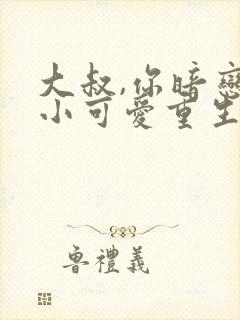 大叔,你暗戀
小可愛重生
魯禮義